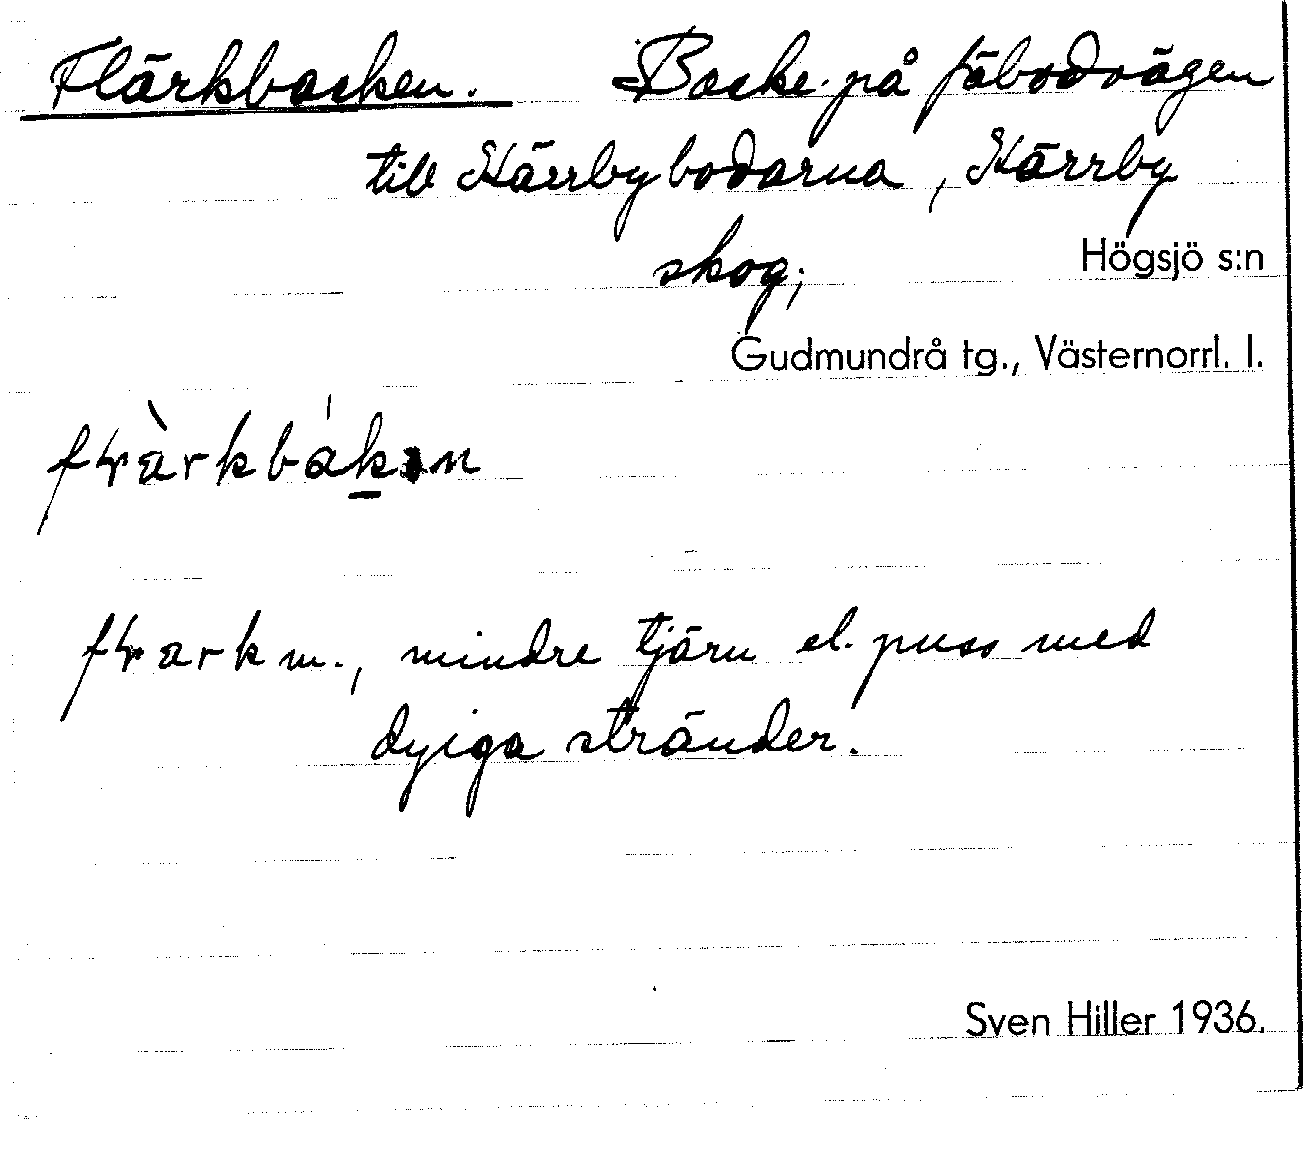 Flärkbacken. Backe på fäbodvägen
till Kärrbybodarna, Kärrby
skog;
Högsjö s:n
Gudmundrå tg., Västernorrl. l.
mindre tjärn el. puss med
dyiga stränder.
Sven Hiller 1936.